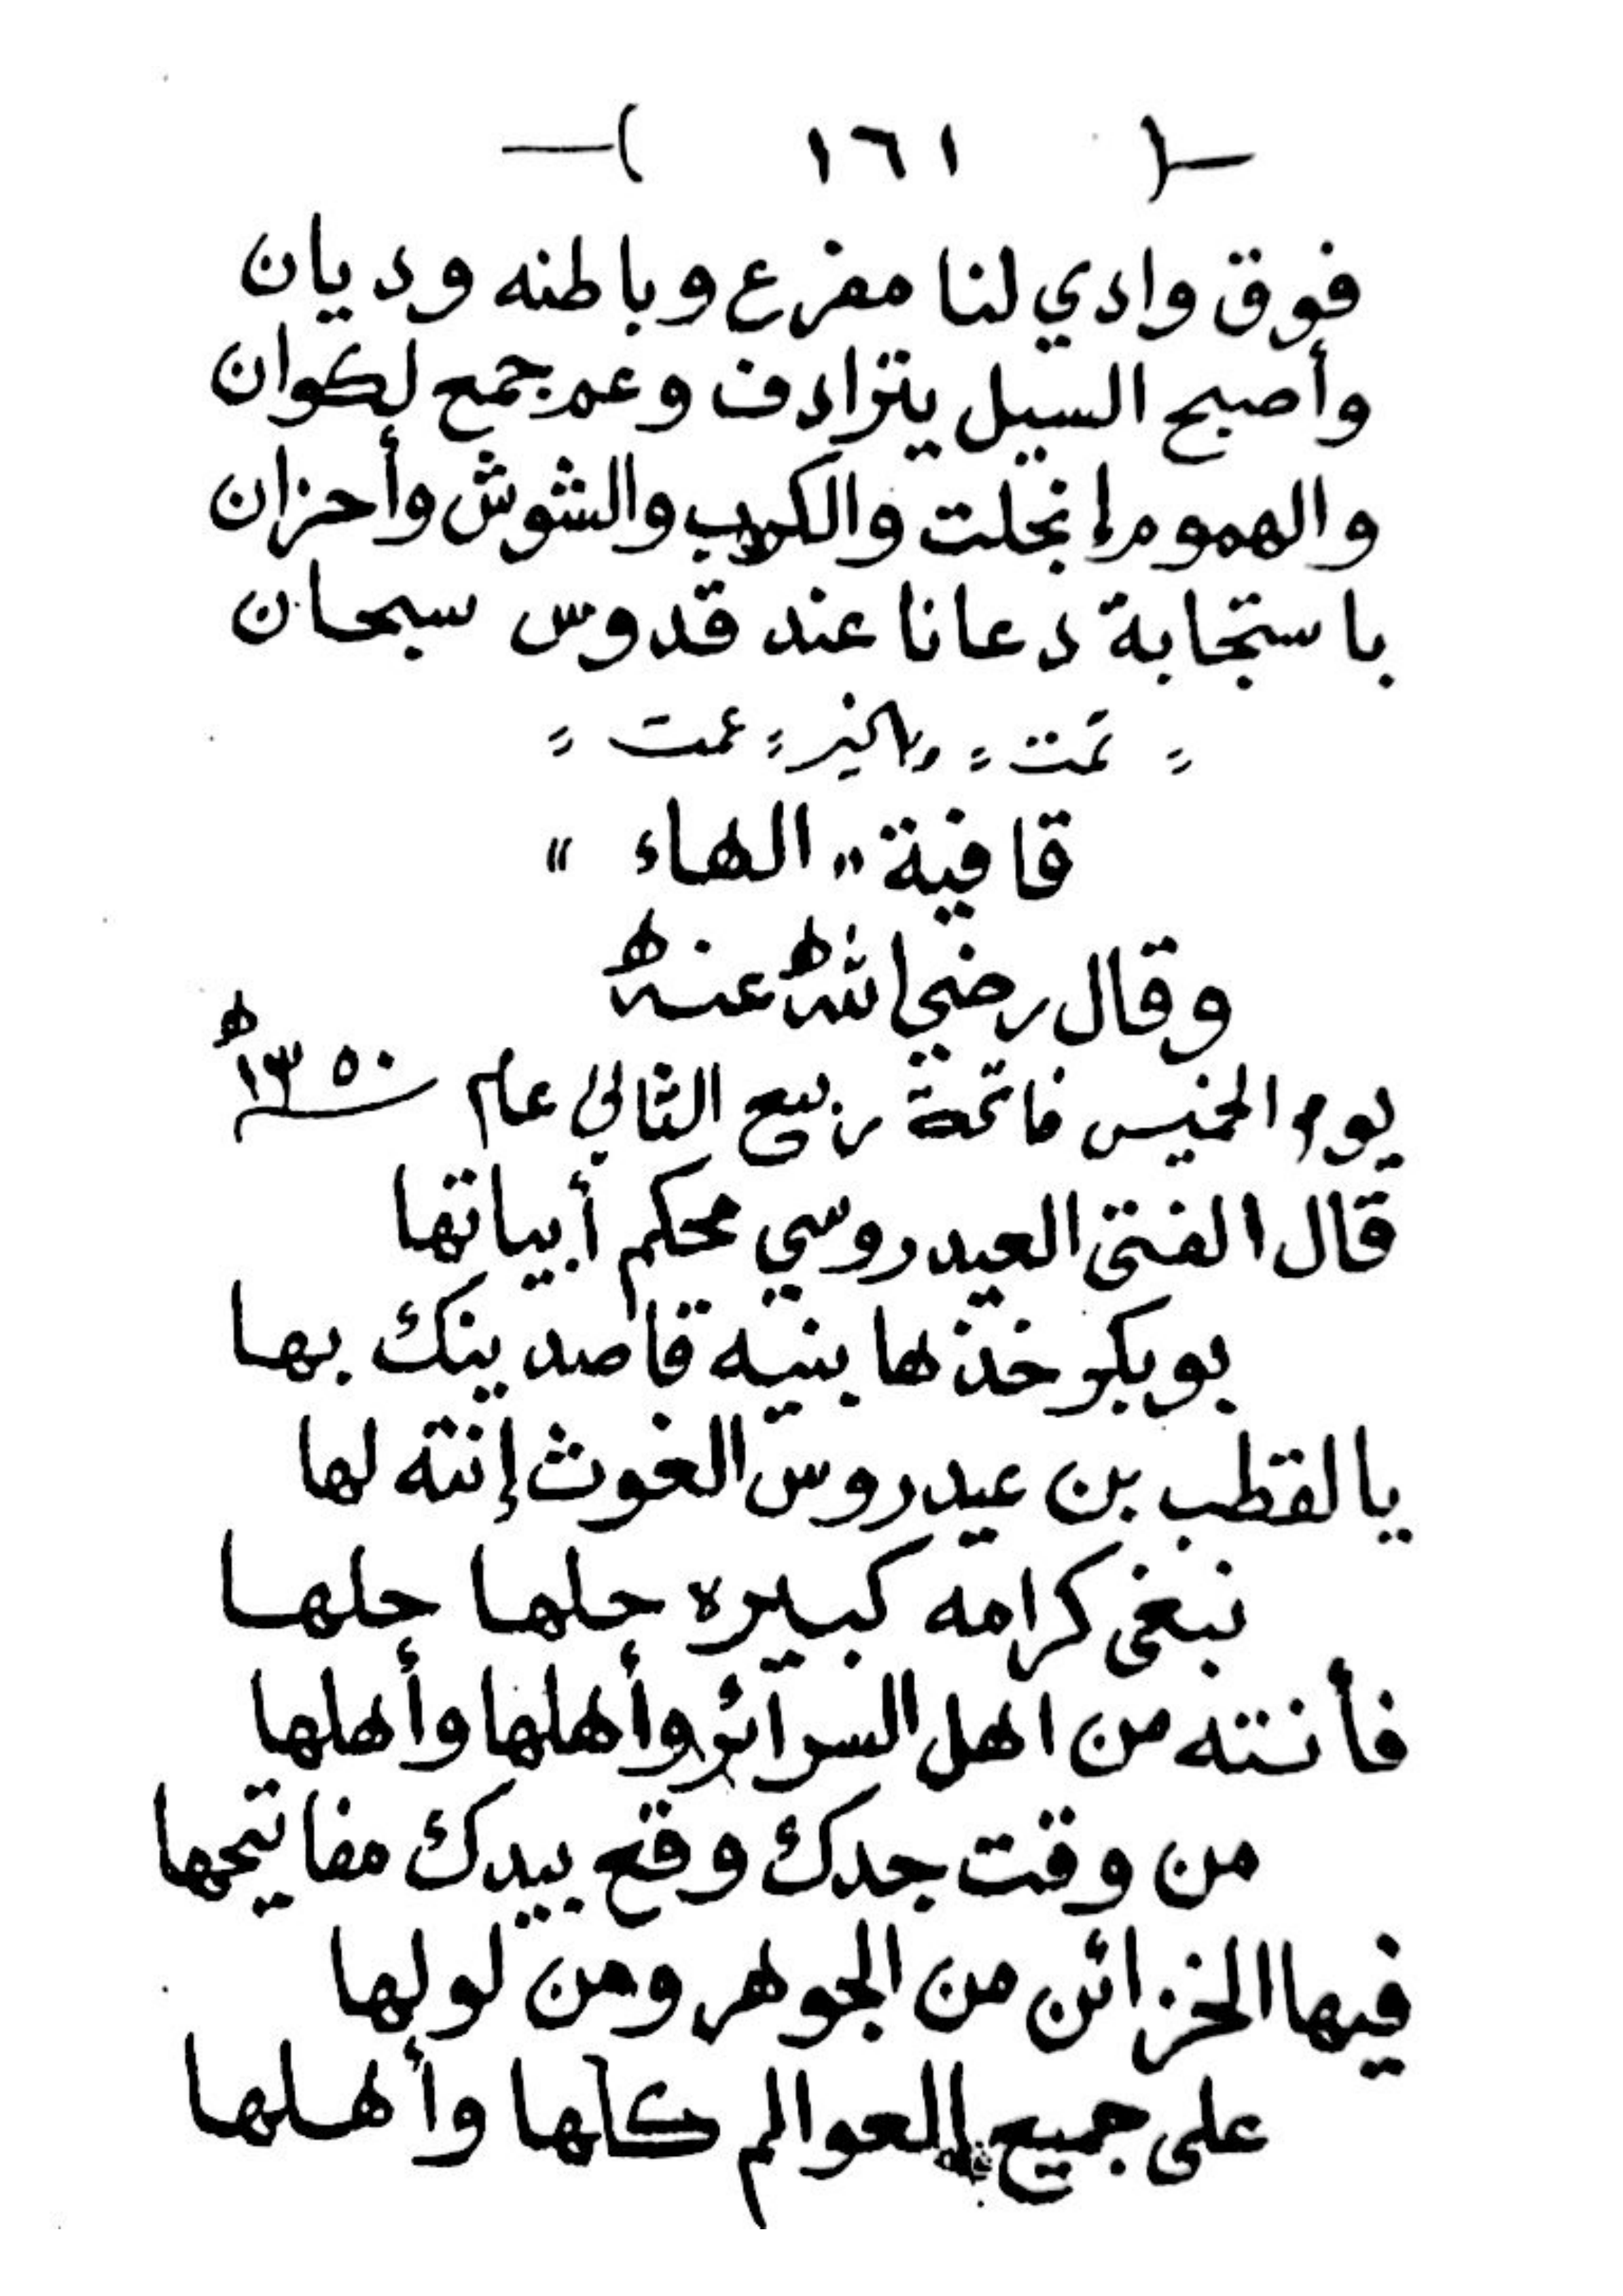 —( ١٦١ )—
فوق وادي لنا مفرع وباطنه وديان
وأصبح السيل يترادف وعم جمع لكوان
والهموم إنجلت والكرب والشوش وأحزان
باستجابة دعانا عند قدوس سبحان
= تمت = وبالخير = عمت =
قافية " الهاء "
وقال رضي الله عنه
يوم الخميس فاتحة ربيع الثاني عام ١٣٥٠ ه
قال الفتى العيدروسي محكم أبياتها
بوبكر خذها بنيه قاصدينك بها
يالقطب بن عيدروس الغوث إنته لها
نبغى كرامه كبيره حلها حلها
فأنته من اهل السرائر وأهلها وأهلها
من وقت جدك وقع بيدك مفاتيحها
فيها الخزائن من الجوهر ومن لولها
على جميع العوالم كلها وأهلها